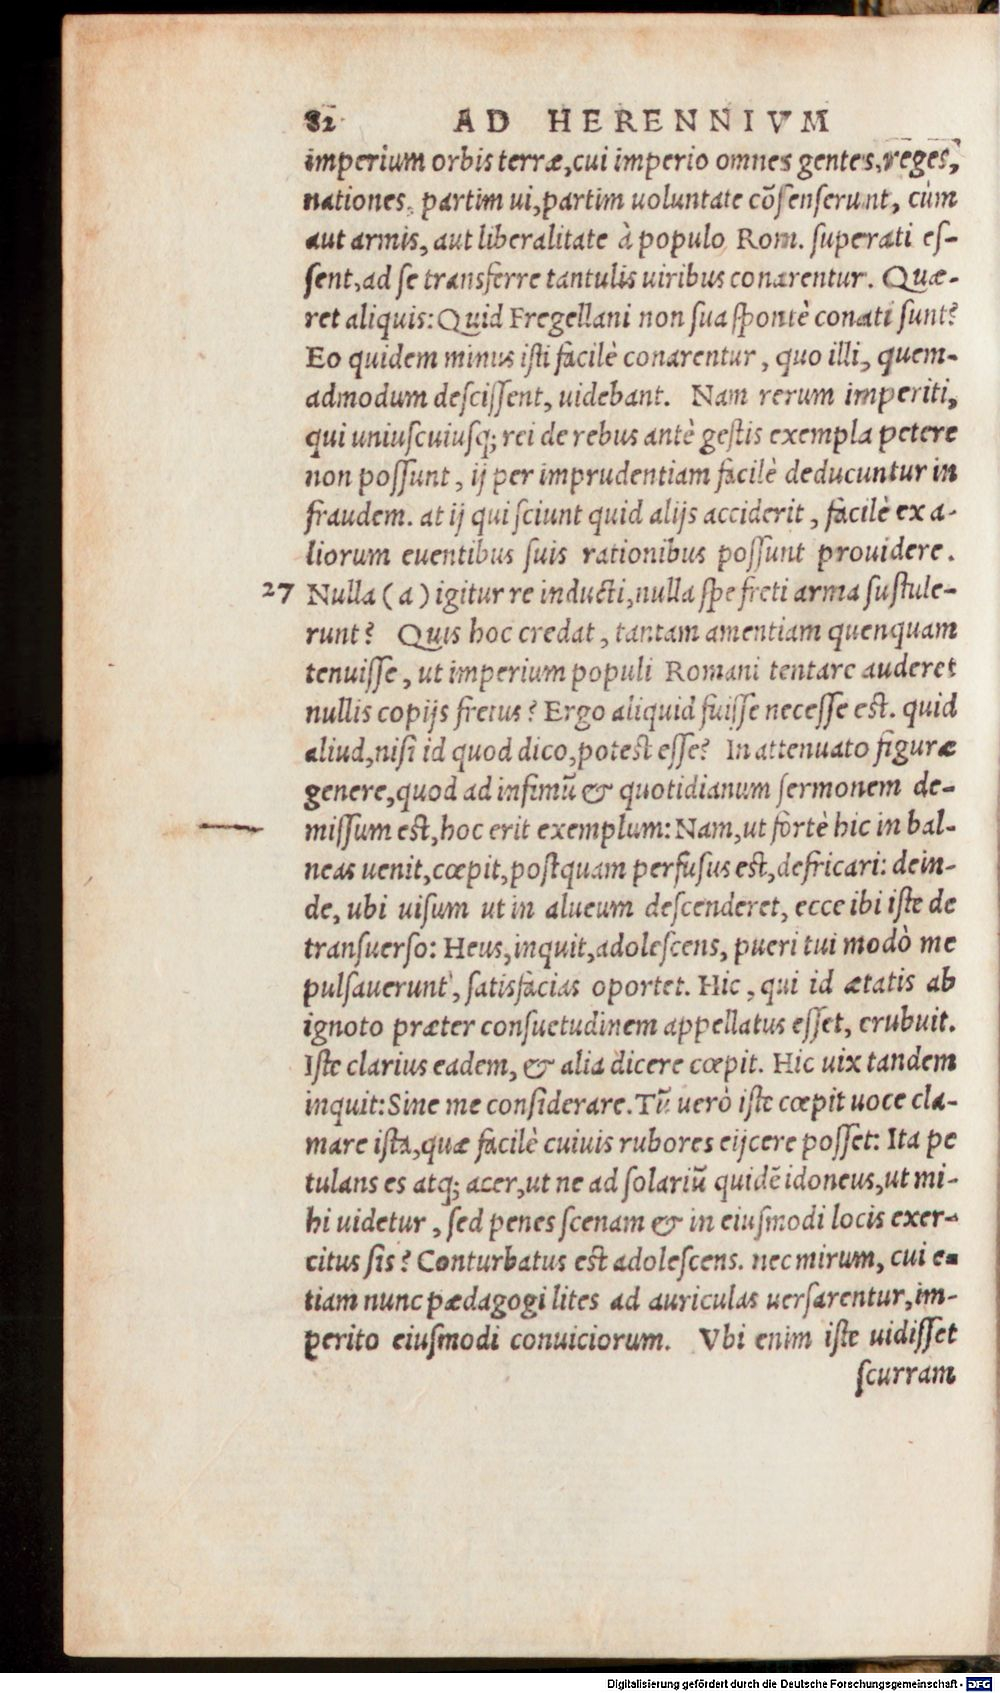 82 AD HERENNIVM
imperium orbis terræ,cui imperio omnes gentes,reges,
nationes, partim ui,partim uoluntate cõſenſerunt, cùm
aut armis, aut liberalitate à populo Rom. ſuperati eſ-
ſent,ad ſe transferre tantulis uiribus conarentur. Quæ-
ret aliquis: Quid Fregellani non ſua ſpontè conati ſunt?
Eo quidem minus iſti facilè conarentur, quo illi, quem-
admodum deſciſſent, uidebant. Nam rerum imperiti,
qui uniuſcuiuſq; rei de rebus antè geſtis exempla petere
non poſſunt, ij per imprudentiam facilè deducuntur in
fraudem. at ij qui ſciunt quid alijs acciderit, facilè ex a-
liorum euentibus ſuis rationibus poſſunt prouidere.
27 Nulla (a) igitur re inducti,nulla ſpe freti arma ſuſtule-
runt? Quis hoc credat, tantam amentiam quenquam
tenuiſſe, ut imperium populi Romani tentare auderet
nullis copijs fretus? Ergo aliquid fuiſſe neceſſe eſt. quid
aliud,niſi id quod dico,poteſt eſſe? In attenuato figuræ
genere,quod ad infimũ & quotidianum ſermonem de-
miſſum eſt,hoc erit exemplum: Nam,ut fortè hic in bal-
neas uenit,cœpit,poſtquam perfuſus eſt,defricari: dein-
de, ubi uiſum ut in alueum deſcenderet, ecce ibi iſte de
tranſuerſo: Heus,inquit,adoleſcens, pueri tui modò me
pulſauerunt, ſatisfacias oportet. Hic, qui id ætatis ab
ignoto præter conſuetudinem appellatus eſſet, erubuit.
Iſte clarius eadem, & alia dicere cœpit. Hic uix tandem
inquit: Sine me conſiderare. Tũ uerò iſte cœpit uoce cla-
mare iſta,quæ facilè cuiuis rubores eijcere poſſet: Ita pe
tulans es atq; acer,ut ne ad ſolariũ quidẽ idoneus,ut mi-
hi uidetur, ſed penes ſcenam & in eiuſmodi locis exer-
citus ſis? Conturbatus eſt adoleſcens. nec mirum, cui e-
tiam nunc pædagogi lites ad auriculas uerſarentur,im-
perito eiuſmodi conuiciorum. Vbi enim iſte uidiſſet
ſcurram
Digitalisierung gefördert durch die Deutsche Forschungsgemeinschaft - DFG